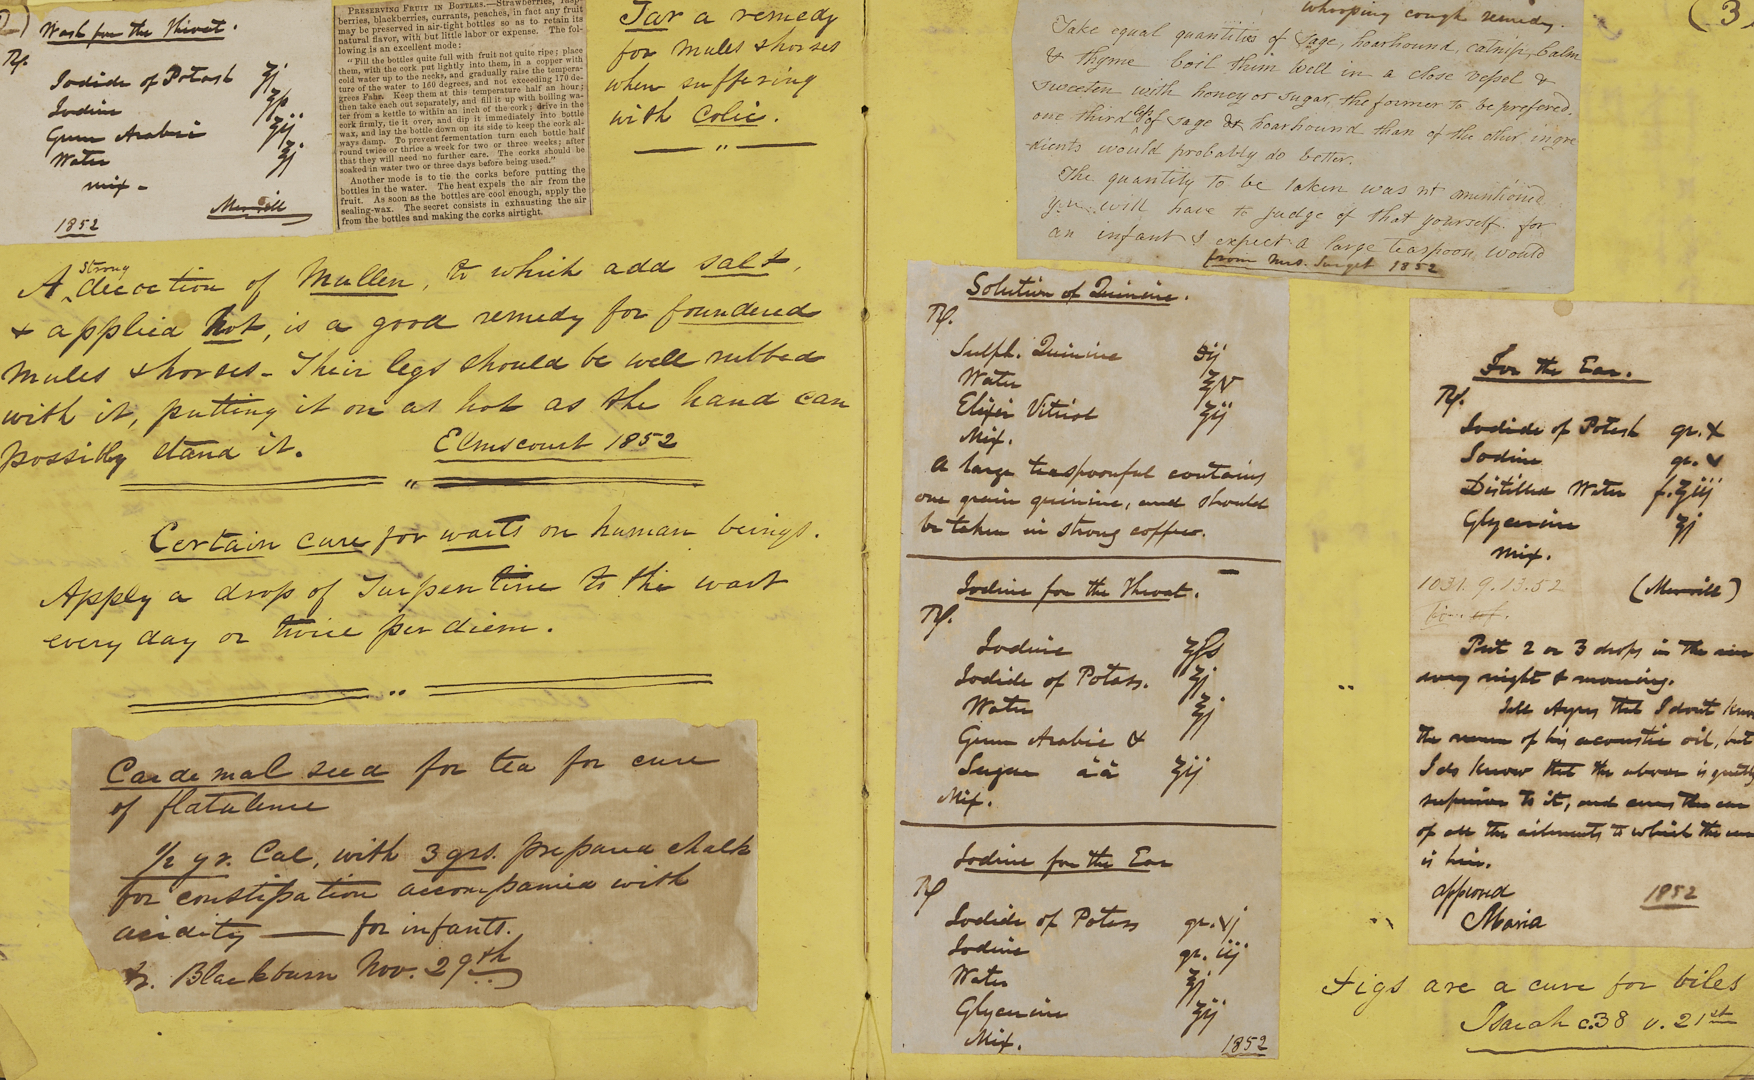 2)
Wash for the Throat.
Rp.
Iodide of Potash ʒj
Iodine ʒſs
Gum Arabic ʒij
Water ℥j
mix -
Merrill
1852
PRESERVING FRUIT IN BOTTLES.—Strawberries, rasp-
berries, blackberries, currants, peaches, in fact any fruit
may be preserved in air-tight bottles so as to retain its
natural flavor, with but little labor or expense. The fol-
lowing is an excellent mode:
"Fill the bottles quite full with fruit not quite ripe; place
them, with the cork put lightly into them, in a copper with
cold water up to the necks, and gradually raise the tempera-
ture of the water to 160 degrees, and not exceeding 170 de-
grees Fahr. Keep them at this temperature half an hour;
then take each out separately, and fill it up with boiling wa-
ter from a kettle to within an inch of the cork; drive in the
cork firmly, tie it over, and dip it immediately into bottle
wax, and lay the bottle down on its side to keep the cork al-
ways damp. To prevent fermentation turn each bottle half
round twice or thrice a week for two or three weeks; after
that they will need no further care. The corks should be
soaked in water two or three days before being used."
Another mode is to tie the corks before putting the
bottles in the water. The heat expels the air from the
fruit. As soon as the bottles are cool enough, apply the
sealing-wax. The secret consists in exhausting the air
from the bottles and making the corks airtight.
Tar a remedy
for mules & horses
when suffering
with Colic.
A strong decoction of Mullen, to which add salt,
& applied hot, is a good remedy for foundered
mules & horses - Their legs should be well rubbed
with it, putting it on as hot as the hand can
possibly stand it. Elmscourt 1852
Certain cure for warts on human beings.
Apply a drop of Turpentine to the wart
every day or twice per diem.
Cardemal seed for tea for cure
of flatulence
1/2 gr. Cal, with 3 grs. prepared chalk
for constipation accompanied with
acidity — for infants.
Blackburn Nov. 29th
(3
whooping cough remedy.
Take equal quantities of Sage, hoarhound, catnip, balm
& thyme boil them well in a close vessel &
sweeten with honey or sugar, the former to be prefered.
one third less of sage & hoarhound than of the other ingre
-dients would probably do better.
The quantity to be taken was not mentioned
you will have to judge of that yourself. for
an infant I expect a large teaspoon would
from Mrs. Surget 1852
Solution of Quinine.
Rp.
Sulph. Quinine ℈ij
Water ℥v
Elixir Vitriol ʒij
Mix.
A large teaspoonful contains
one grain quinine, and should
be taken in strong coffee.
Iodine for the Throat.
Rp.
Iodine ʒſs
Iodide of Potass. ʒj
Water ℥j
Gum Arabic &
Sugar āā ʒij
Mix.
Iodine for the Ear
Rp
Iodide of Potass gr. vj
Iodine gr. iij
Water ℥j
Glycerine ʒij
Mix.
1852
For the Ear.
Rp.
Iodide of Potash gr. x
Iodine gr. v
Distilled Water f.ʒiij
Glycerine ʒj
mix.
1031. 9.13.52
(Merrill)
Put 2 or 3 drops in the ear
every night & morning.
Tell Ayres that I dont know
the name of his acoustic oil, but
I do know that the above is greatly
superior to it, and cures the ear
of all the ailments to which the ear
is heir.
approved 1852
Maria
Figs are a cure for biles
Isaiah c.38 v. 21st